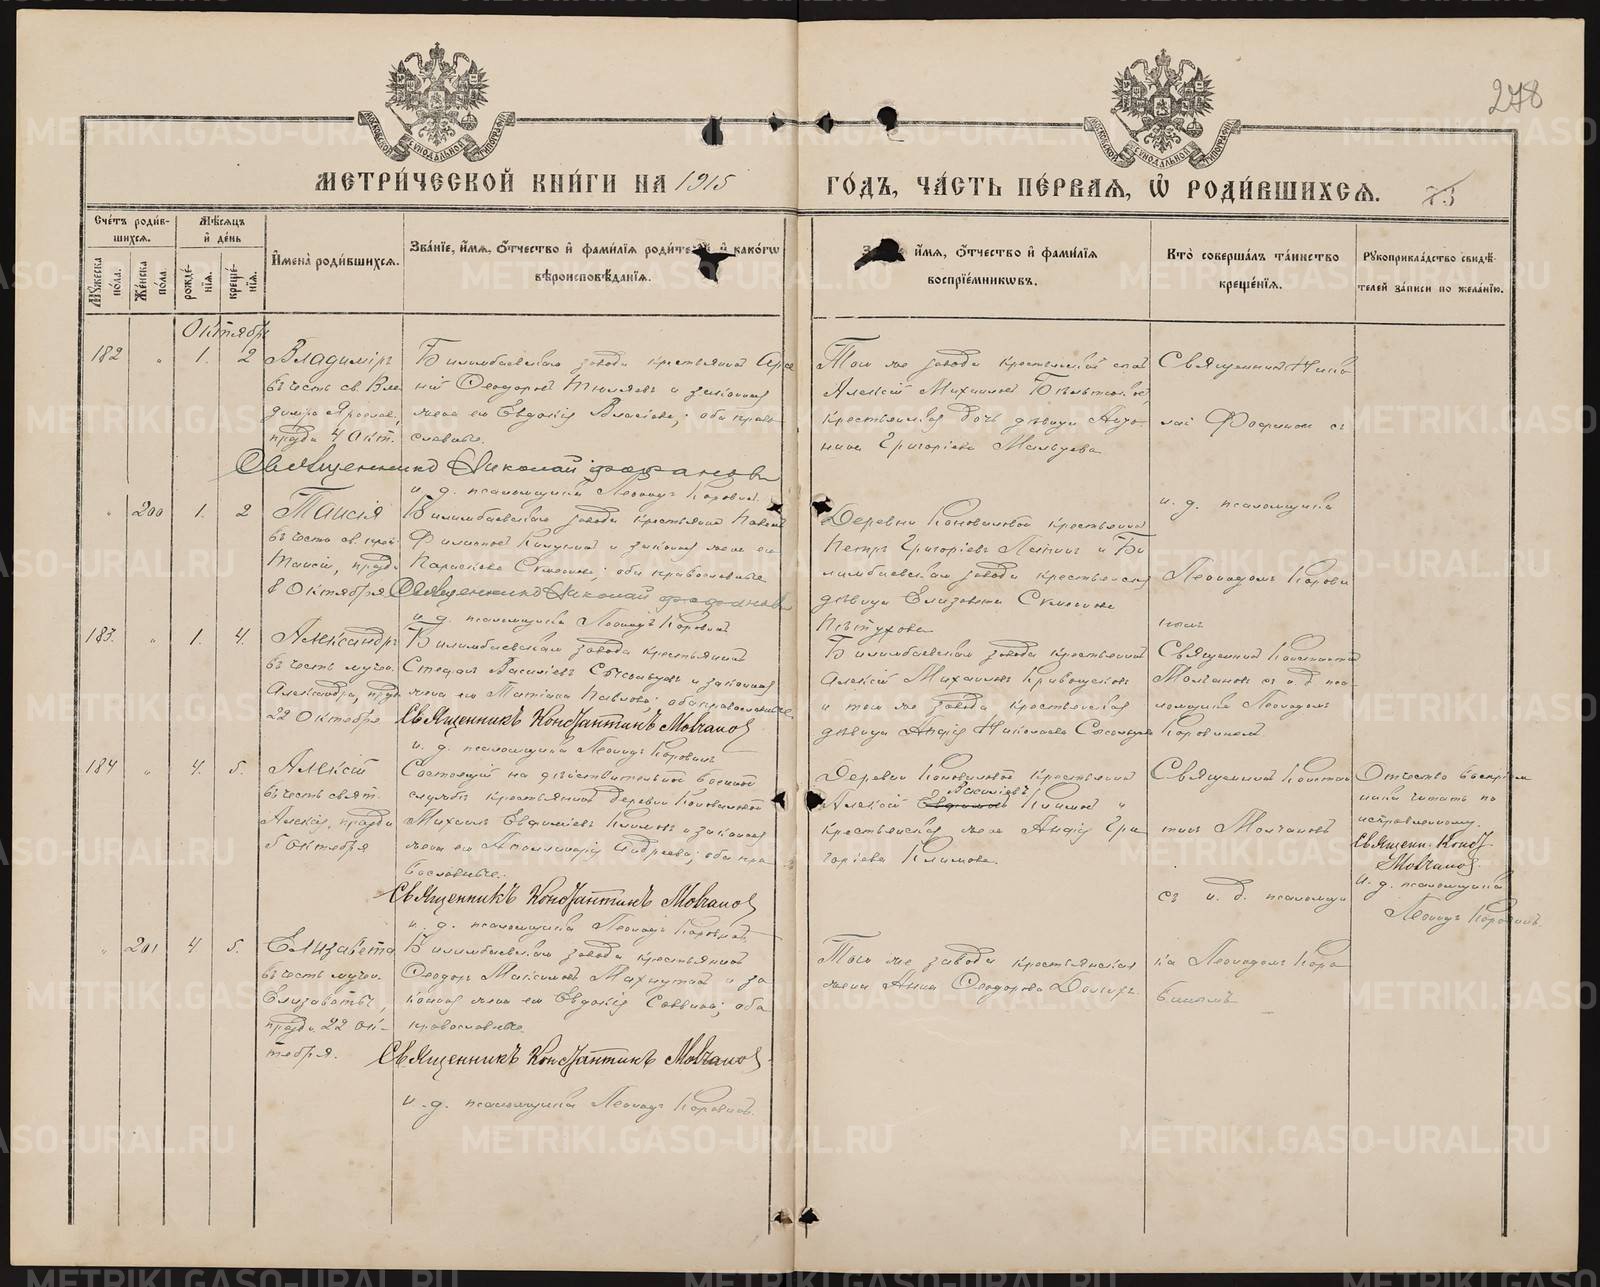 278
МЕТРИ́ЧЕСКОЙ КНИ́ГИ НА 1915
ГО́ДЪ, ЧА́СТЬ ПЕ́РВАЯ, Ѿ РОДИ́ВШИХСЯ.
Сче́тъ роди́в-
шихся.
Мѣ́сяцъ
и҆ де́нь
Мꙋ́жеска по́ла.
Же́нска по́ла.
рожде́-
нїя.
креще́-
нїя.
И҆мена̀ роди́вшихся.
Зва́нїе, и҆́мя, ѻ҆́тчество и҆ фами́лїя роди́те и҆ како́гѡ
вѣроисповѣ́данїя.
и҆́мя, ѻ҆́тчество и҆ фами́лїя
воспрїе́мникѡвъ.
Кто̀ соверша́лъ та́инство
креще́нїя.
Рꙋкоприкла́дство свидѣ́-
телей за́писи по жела́нїю.
Октябрь
182 " 1. 2 Владиміръ
въ честь св. Вла
диміра Ярослав,
праздн. 4 Окт.
Билимбаевскаго завода крестьянинъ Арсе
ній Ѳеодоровъ и законная
жена его Евдокія Власіева; оба право
славные.
Священникъ Николай Фофановъ
и. д. псаломщика Леонидъ Коровинъ.
Того же завода крестьянскій сынъ
Алексій Михаиловъ
крестьянская дочь дѣвица Анто
нина Григоріева Мальцева
Священникъ Нико
лай Фофановъ съ
и. д. псаломщика
Леонидомъ Корови
нымъ
" 200 1. 2 Таисія
въ честь св. преп.
Таисіи, праздн.
8 Октября
Билимбаевскаго завода крестьянинъ Павелъ
Филиповъ и законная жена его
Параскева Симеонова; оба православные
Священникъ Николай Фофановъ
и. д. псаломщика Леонидъ Коровинъ
Деревни Коноваловой крестьянинъ
Петръ Григоріевъ и Би
лимбаевскаго завода крестьянская
дѣвица Елизавета Симеонова
Пѣтухова
183. " 1. 4. Александръ
въ честь мучен.
Александра, праздн.
22 Октября
Билимбаевскаго завода крестьянинъ
Стефанъ Василіевъ и законная
жена его Татіана Павлова; оба православные.
Священникъ Константинъ Молчановъ
и. д. псаломщика Леонидъ Коровинъ
Билимбаевскаго завода крестьянинъ
Алексій Михаиловъ Кривощековъ
и того же завода крестьянская
дѣвица Анфія Николаева
Священникъ Константинъ
Молчановъ съ и. д. пса
ломщика Леонидомъ
Коровинымъ
184 " 4. 5. Алексій
въ честь святит.
Алексія, праздн.
5 Октября
Состоящій на дѣйствительной военной
службѣ крестьянинъ деревни Коноваловой
Михаилъ Евфиміевъ Климовъ и законная
жена его Аполлинарія Андреева; оба пра
вославные.
Священникъ Константинъ Молчановъ
и. д. псаломщика Леонидъ Коровинъ
Деревни Коноваловой крестьянинъ
Василіевъ
Алексій Евфиміевъ Климовъ и
крестьянская жена Анфія Гри
горіева Климова.
Священникъ Констан
тинъ Молчановъ
съ и. д. псаломщи
ка Леонидомъ Коро
винымъ
Отчество воспріем
ника читать по
исправленному.
Священн. Конст.
Молчановъ.
и. д. псаломщика
Леонидъ Коровинъ.
" 201 4 5. Елизавета
въ честь мучен.
Елизаветы,
праздн. 22 Ок-
тября.
Билимбаевскаго завода крестьянинъ
Ѳеодоръ Максимовъ Махнутинъ и за
конная жена его Евдокія Саввина; оба
православные.
Священникъ Константинъ Молчановъ
и. д. псаломщика Леонидъ Коровинъ.
Того же завода крестьянская
жена Анна Ѳеодорова
METRIKI.GASO-URAL.RU